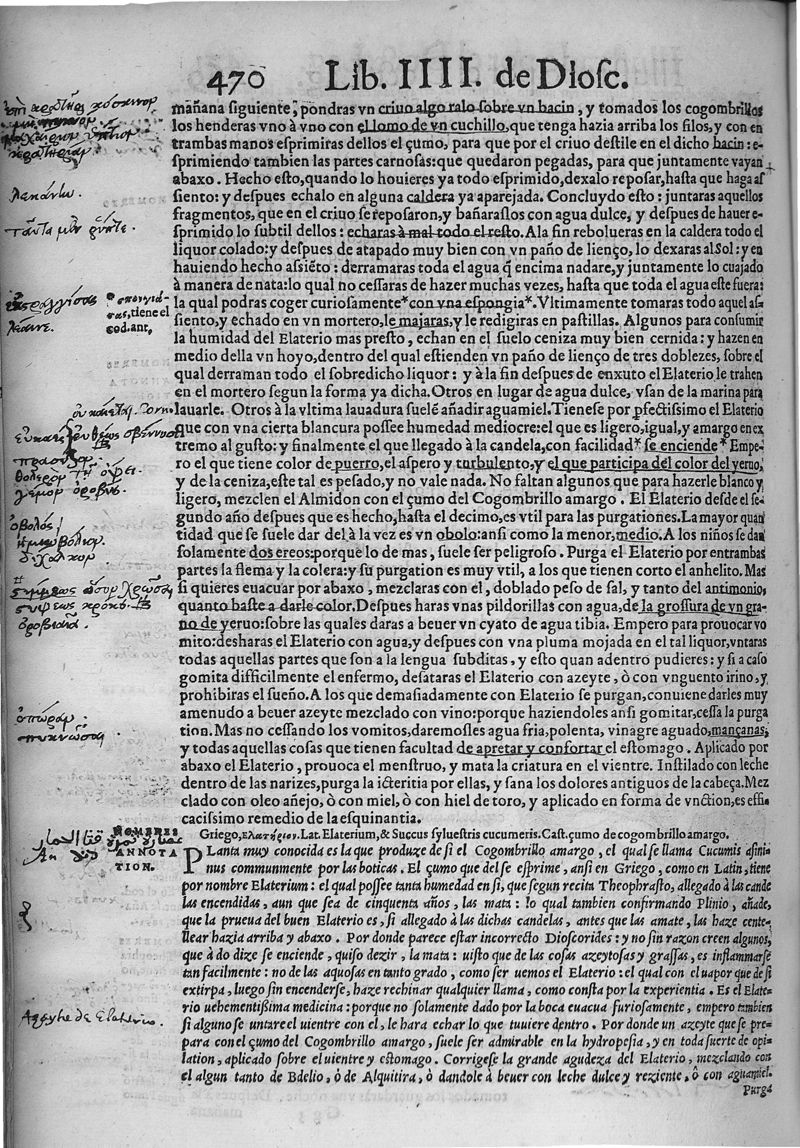 470 Lib. IIII. de Diosc.
mañana siguiente, pondras vn criuo algo ralo sobre vn bacin, y tomados los cogombrillos
los henderas vno à vno con el lomo de vn cuchillo, que tenga hazia arriba los filos, y con en
trambas manos esprimiras dellos el çumo, para que por el criuo destile en el dicho bacin: e-
sprimiendo tambien las partes carnosas: que quedaron pegadas, para que juntamente vayan
abaxo. Hecho esto, quando lo houieres ya todo esprimido, dexalo reposar, hasta que haga as
siento: y despues echalo en alguna caldera ya aparejada. Concluydo esto: juntaras aquellos
fragmentos, que en el criuo se reposaron, y bañaraslos con agua dulce, y despues de hauer e-
sprimido lo subtil dellos: echaras à mal todo el resto. A la fin rebolueras en la caldera todo el
liquor colado: y despues de atapado muy bien con vn paño de lienço, lo dexaras al Sol: y en
hauiendo hecho assiẽto: derramaras toda el agua q̃ encima nadare, y juntamente lo cuajado
à manera de nata: lo qual no cessaras de hazer muchas vezes, hasta que toda el agua este fuera:
la qual podras coger curiosamente*con vna espongia*. Vltimamente tomaras todo aquel as-
siento, y echado en vn mortero, le majaras, y le redigiras en pastillas. Algunos para consumir
la humidad del Elaterio mas presto, echan en el suelo ceniza muy bien cernida: y hazen en
medio della vn hoyo, dentro del qual estienden vn paño de lienço de tres doblezes, sobre el
qual derraman todo el sobredicho liquor: y à la fin despues de enxuto el Elaterio, le trahen
en el mortero segun la forma ya dicha. Otros en lugar de agua dulce, vsan de la marina para
lauarle. Otros à la vltima lauadura suelẽ añadir aguamiel. Tienese por pfectissimo el Elaterio
que con vna cierta blancura possee humedad mediocre: el que es ligero, igual, y amargo en ex
tremo al gusto: y finalmente el que llegado à la candela, con facilidad* se enciende* Empe-
ro el que tiene color de puerro, el aspero y turbulento, y el que participa del color del yeruo,
y de la ceniza, este tal es pesado, y no vale nada. No faltan algunos que para hazerle blanco y
ligero, mezclen el Almidon con el çumo del Cogombrillo amargo. El Elaterio desde el se-
gundo año despues que es hecho, hasta el decimo, es vtil para las purgationes. La mayor quan
tidad que se suele dar del à la vez es vn obolo: ansi como la menor, medio. A los niños se dan
solamente dos ereos: porque lo de mas, suele ser peligroso. Purga el Elaterio por entrambas
partes la flema y la colera: y su purgation es muy vtil, a los que tienen corto el anhelito. Mas
si quieres euacuar por abaxo, mezclaras con el, doblado peso de sal, y tanto del antimonio,
quanto baste a darle color. Despues haras vnas pildorillas con agua, de la grossura de vn gra-
no de yeruo: sobre las quales daras a beuer vn cyato de agua tibia. Empero para prouocar vo
mito: desharas el Elaterio con agua, y despues con vna pluma mojada en el tal liquor, vntaras
todas aquellas partes que son a la lengua subditas, y esto quan adentro pudieres: y si a caso
gomita difficilmente el enfermo, desataras el Elaterio con azeyte, ò con vnguento irino, y
prohibiras el sueño. A los que demasiadamente con Elaterio se purgan, conuiene darles muy
amenudo a beuer azeyte mezclado con vino: porque haziendoles ansi gomitar, cessa la purga
tion. Mas no cessando los vomitos, daremosles agua fria, polenta, vinagre aguado, mançanas,
y todas aquellas cosas que tienen facultad de apretar y confortar el estomago. Aplicado por
abaxo el Elaterio, prouoca el menstruo, y mata la criatura en el vientre. Instilado con leche
dentro de las narizes, purga la icteritia por ellas, y sana los dolores antiguos de la cabeça. Mez
clado con oleo añejo, ò con miel, ò con hiel de toro, y aplicado en forma de vnction, es effi
cacissimo remedio de la esquinantia.
NOMBRES Griego, ελατήριον. Lat. Elaterium, & Succus syluestris cucumeris. Cast. çumo de cogombrillo amargo.
ANNOTA
TION.
PLanta muy conocida es la que produze de si el Cogombrillo amargo, el qual se llama Cucumis asini-
nus communmente por las boticas. El çumo que del se esprime, ansi en Griego, como en Latin, tiene
por nombre Elaterium: el qual possee tanta humedad en si, que segun recita Theophrasto, allegado à las cande
las encendidas, aun que sea de cinquenta años, las mata: lo qual tambien confirmando Plinio, añade,
que la prueua del buen Elaterio es, si allegado à las dichas candelas, antes que las amate, las haze cente-
llear hazia arriba y abaxo. Por donde parece estar incorrecto Dioscorides: y no sin razon creen algunos,
que à do dize se enciende, quiso dezir, la mata: uisto que de las cosas azeytosas y grassas, es inflammarse
tan facilmente: no de las aquosas en tanto grado, como ser uemos el Elaterio: el qual con el uapor que de si
extirpa, luego sin encenderse, haze rechinar qualquier llama, como consta por la experientia. Es el Elate-
rio uehementißima medicina: porque no solamente dado por la boca euacua furiosamente, empero tambien
si alguno se untare el uientre con el, le hara echar lo que tuuiere dentro. Por donde un azeyte que se pre-
para con el çumo del Cogombrillo amargo, suele ser admirable en la hydropesia, y en toda suerte de opi-
lation, aplicado sobre el uientre y estomago. Corrigese la grande agudeza del Elaterio, mezclando con
el algun tanto de Bdelio, ò de Alquitira, ò dandole à beuer con leche dulce y reziente, ò con aguamiel.
Purga
*σπογγιά-
σας, tiene el
cod. ant.
ὀβολός
Azeyte de Elaterio.